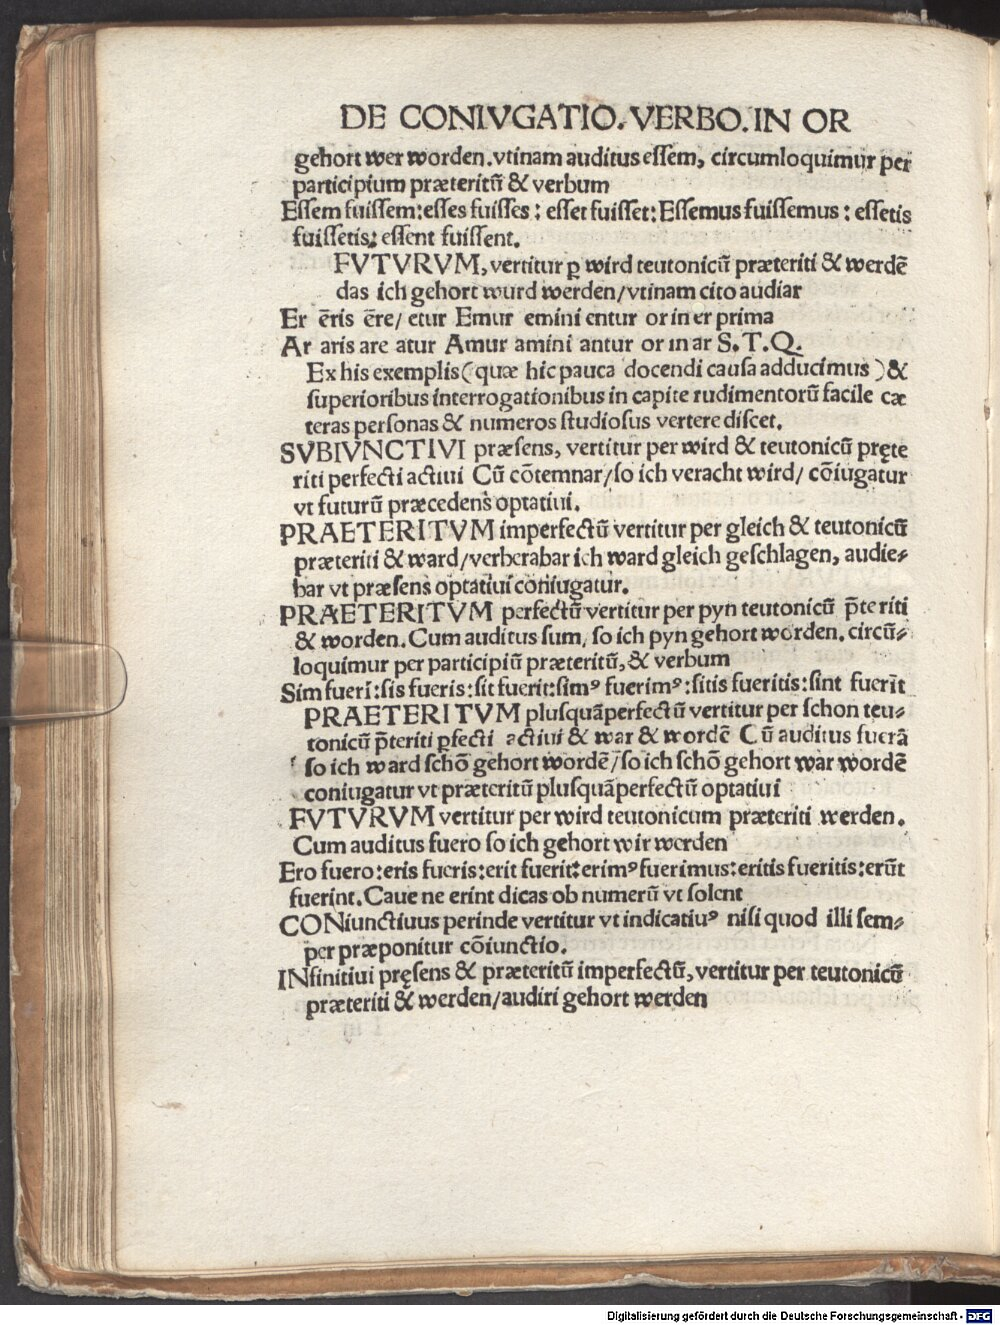 DE CONIVGATIO. VERBO. IN OR
gehort wer worden. vtinam auditus essem, circumloquimur per
participium præteritū & verbum
Essem fuissem: esses fuisses: esset fuisset: Essemus fuissemus: essetis
fuissetis: essent fuissent.
FVTVRVM, vertitur ꝑ wird teutonicū præteriti & werdē
das ich gehort wurd werden/ vtinam cito audiar
Er ēris ēre/ etur Emur emini entur or in er prima
Ar aris are atur Amur amini antur or in ar S. T. Q.
Ex his exemplis (quæ hic pauca docendi causa adducimus) &
superioribus interrogationibus in capite rudimentorū facile cæ
teras personas & numeros studiosus vertere discet.
SVBIVNCTIVI præsens, vertitur per wird & teutonicū pręte
riti perfecti actiui Cū cōtemnar/ so ich veracht wird/ cōiugatur
vt futurū præcedens optatiui.
PRAETERITVM imperfectū vertitur per gleich & teutonicū
præteriti & ward/ verberabar ich ward gleich geschlagen, audie-
bar vt præsens optatiui coniugatur.
PRAETERITVM perfectū vertitur per pyn teutonicū p̄teriti
& worden. Cum auditus sum, so ich pyn gehort worden. circū-
loquimur per participiū præteritū, & verbum
Sim fuerī: sis fueris: sit fuerit: simꝰ fuerimꝰ: sitis fueritis: sint fuerīt
PRAETERITVM plusquāperfectū vertitur per schon teu-
tonicū p̄teriti ꝑfecti actiui & war & wordē Cū auditus fuerā
so ich ward schō gehort wordē/ so ich schō gehort war wordē
coniugatur vt præteritū plusquāperfectū optatiui
FVTVRVM vertitur per wird teutonicum præteriti werden.
Cum auditus fuero so ich gehort wir werden
Ero fuero: eris fueris: erit fuerit: erimꝰ fuerimus: eritis fueritis: erūt
fuerint. Caue ne erint dicas ob numerū vt solent
CONiunctiuus perinde vertitur vt indicatiuꝰ nisi quod illi sem-
per præponitur cōiunctio.
INfinitiui pręsens & præteritū imperfectū, vertitur per teutonicū
præteriti & werden/ audiri gehort werden
Digitalisierung gefördert durch die Deutsche Forschungsgemeinschaft - DFG